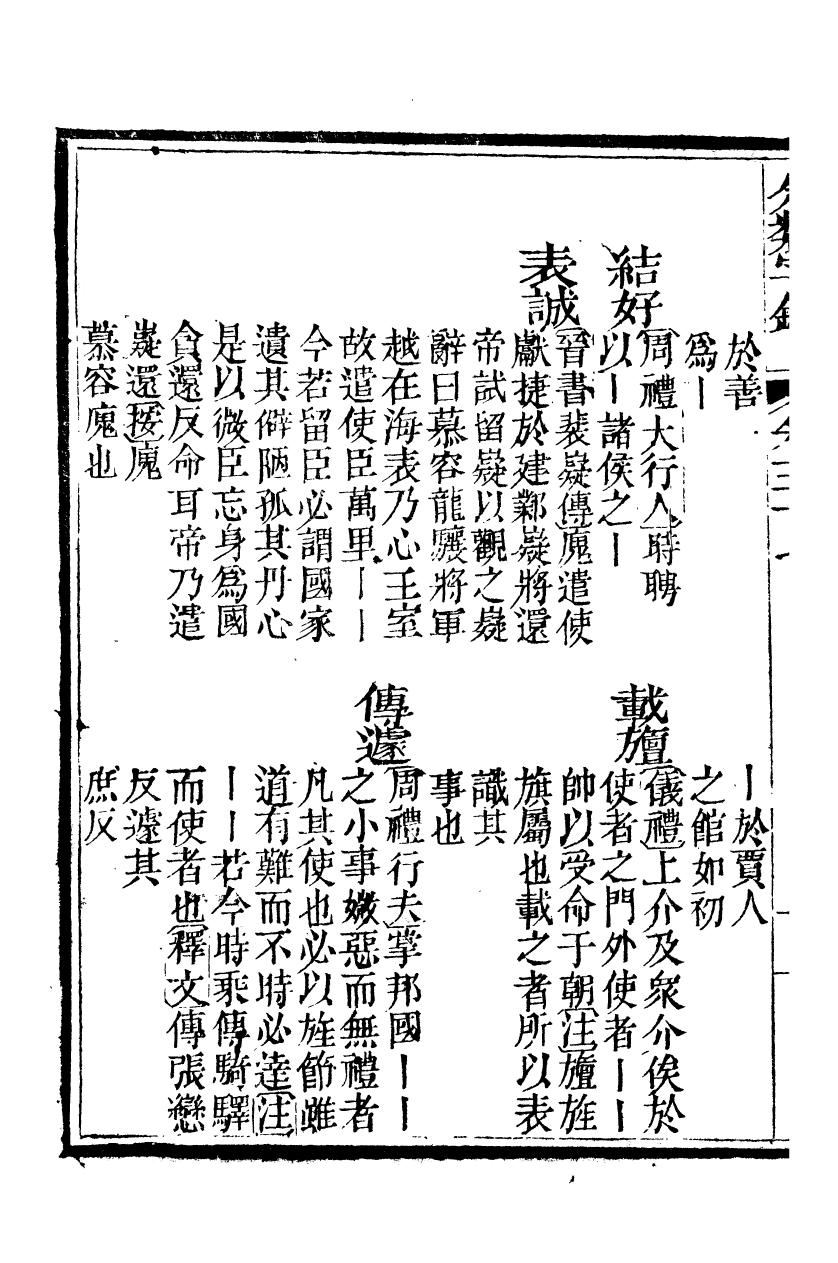 於善
爲｜
結好周禮大行人時聘
以｜諸侯之｜
表誠晉書裴嶷傳廆遣使
獻捷於建鄴嶷將還
帝試留嶷以觀之嶷
辭曰慕容龍驤將軍
越在海表乃心王室
故遣使臣萬里｜｜
今若留臣必謂國家
遺其僻陋孤其丹心
是以微臣忘身爲國
貪還反命耳帝乃遣
嶷還按廆
慕容廆也
｜於賈人
之館如初
載旜儀禮上介及衆介俟於
使者之門外使者｜｜
帥以受命于朝注旜旌
旗屬也載之者所以表
識其
事也
傳遽周禮行夫掌邦國｜｜
之小事媺惡而無禮者
凡其使也必以旌節雖
道有難而不時必達注
｜｜若今時乘傳騎驛
而使者也釋文傳張戀
反遽其
庶反